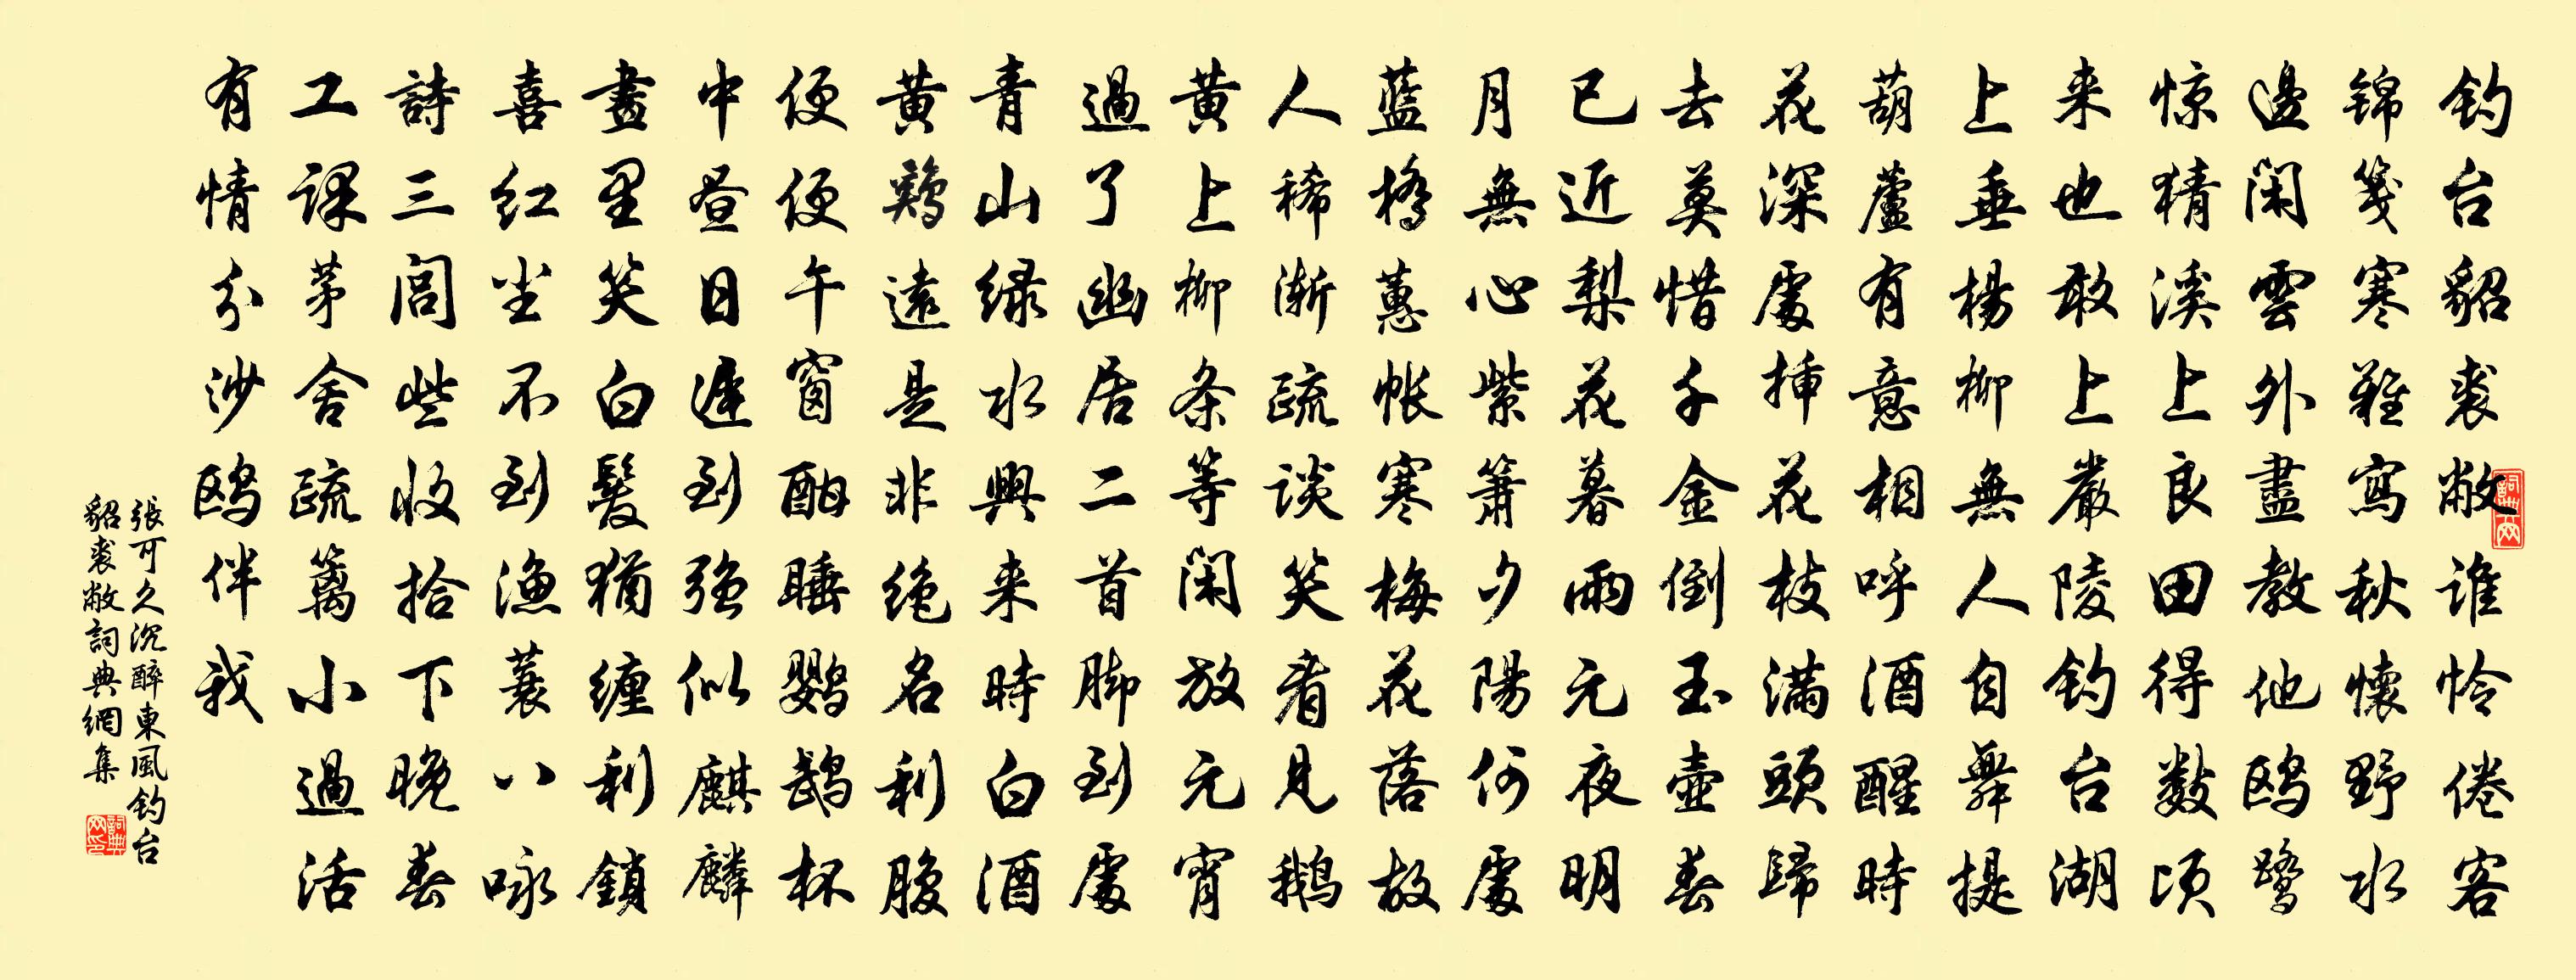 钓台貂裘敝谁怜倦客
锦笺寒难写秋怀野水
邊闲雲外盡教他鸥鹭
惊猜溪上良田得数顷
来也敢上嚴陵钓台湖
上垂楊柳無人自舞提
葫蘆有意相呼酒醒時
花深處挿花枝满頭歸
去莫惜千金倒玉壶春
已近梨花暮雨元夜明
月無心紫箫夕陽何處
蓝橋蕙帐寒梅花落故
人稀渐疏谈笑看見鵝
黄上柳条等闲放元宵
過了幽居二首脚到處
青山绿水興来時白酒
黄鷄遠是非绝名利腹
便便午窗酣睡鹦鹉杯
中昼日遲到强似麒麟
畫里笑白髮猶缠利鎖
喜红尘不到漁蓑八咏
詩三闾些收拾下晚春
工課茅舍疏篱小過活
有情分沙鸥伴我
張可久沉醉東風钓台
貂裘敝詞典網集